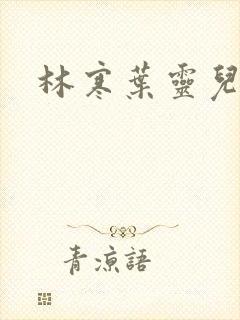 林寒葉靈兒
青涼語